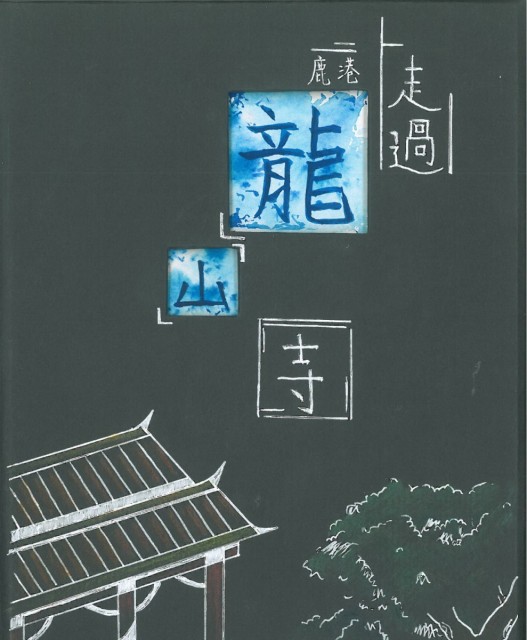 走過
鹿港
龍
山
寺